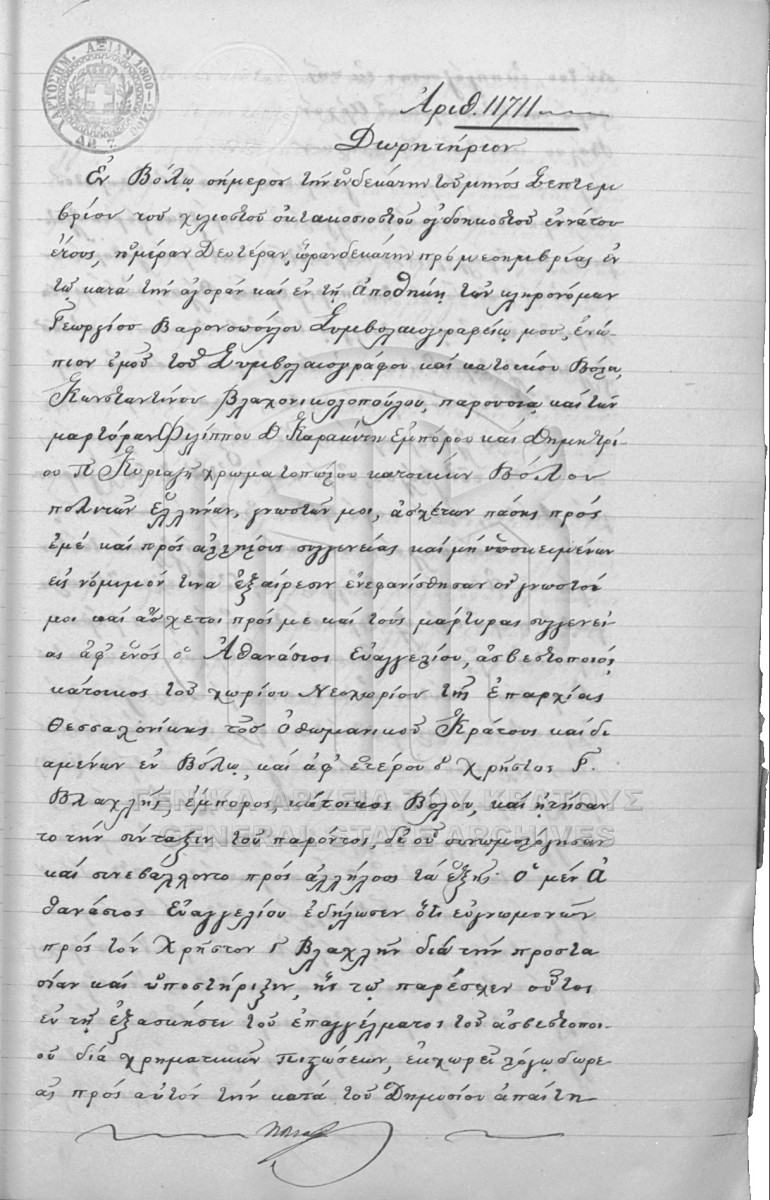 ΧΑΡΤΟΣΗΜ. ΑΞΙΑΣ 1800-2400
ΔΡ. 7
Ἀριθ. 11711
Δωρητήριον
Ἐν Βόλῳ σήμερον τήν ἑνδεκάτην τοῦ μηνός Σεπτεμ
βρίου τοῦ χιλιοστοῦ οκτακοσιοστοῦ ὀγδοηκοστοῦ ἐννάτου
ἔτους, ἡμέραν Δευτέραν, ὥραν δεκάτην πρό μεσημβρίας ἐν
τῷ κατά τήν ἀγοράν καί ἐν τῇ ἀποθήκῃ τῶν κληρονόμων
Γεωργίου Βαρονοπούλου Συμβολαιογραφείῳ μου, ἐνώ-
πιον ἐμοῦ τοῦ Συμβολαιογράφου καί κατοίκου Βόλου,
Κωνσταντίνου Βλαχονικολοπούλου, παρουσίᾳ καί τῶν
μαρτύρων Φιλίππου Δ Καρακίτη Εμπόρου καί Δημητρί-
ου Π Κυριαζῆ χρωματοπώλου κατοίκων Βόλου
πολιτῶν ἑλλήνων, γνωστῶν μοι, ἀσχέτων πάσης πρός
ἐμέ καί πρός ἀλλήλους συγγενείας καί μή ὑποκειμένων
εἰς νόμιμόν τινα ἐξαίρεσιν ἐνεφανίσθησαν οἱ γνωστοί
μοι καί ἄσχετοι πρός με καί τούς μάρτυρας συγγενεί-
ας ἀφ' ἑνός ὁ Ἀθανάσιος Εὐαγγελίου, ἀσβεστοποιός
κάτοικος τοῦ χωρίου Νεοχωρίου τῆς ἐπαρχίας
Θεσσαλονίκης τοῦ Ὀθωμανικοῦ Κράτους καί δι
αμένων ἐν Βόλῳ, καί ἀφ' ἑτέρου ὁ Χρῆστος Γ.
Βλαχλῆς, ἔμπορος, κάτοικος Βόλου, καί ἠτήσαν
το τήν σύνταξιν τοῦ παρόντος, δι' οὗ συνωμολόγησαν
καί συνεβάλλοντο πρός ἀλλήλους τά ἑξῆς. Ὁ μέν Ἀ
θανάσιος Εὐαγγελίου ἐδήλωσεν ὅτι εὐγνωμονῶν
πρός τόν Χρῆστον Γ Βλαχλῆν διά τήν προστα
σίαν καί ὑποστήριξιν, ἥν τῷ παρέσχεν οὗτος
ἐν τῇ ἐξασκήσει τοῦ ἐπαγγέλματος τοῦ ἀσβεστοποι-
οῦ διά χρηματικῶν πιστώσεων, ἐκχωρεῖ λόγῳ δωρε
ᾶς πρός αὐτόν τήν κατά τοῦ Δημοσίου ἀπαίτη
ΓΕΝΙΚΑ ΑΡΧΕΙΑ ΤΟΥ ΚΡΑΤΟΥΣ
GENERAL STATE ARCHIVES